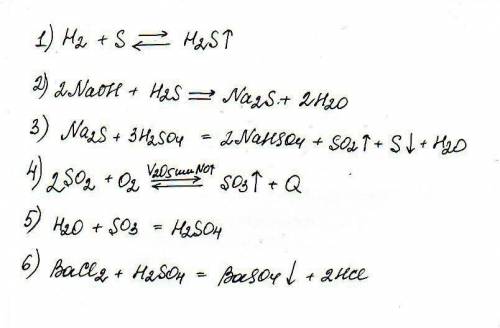 1) H2 + S ⇄ H2S↑
2) 2NaOH + H2S ⇌ Na2S + 2H2O
3) Na2S + 3H2SO4 = 2NaHSO4 + SO2↑ + S↓ + H2O
4) 2SO2 + O2 V2O5 или NO↑ ⇄ SO3↑ + Q
5) H2O + SO3 = H2SO4
6) BaCl2 + H2SO4 = BaSO4↓ + 2HCl